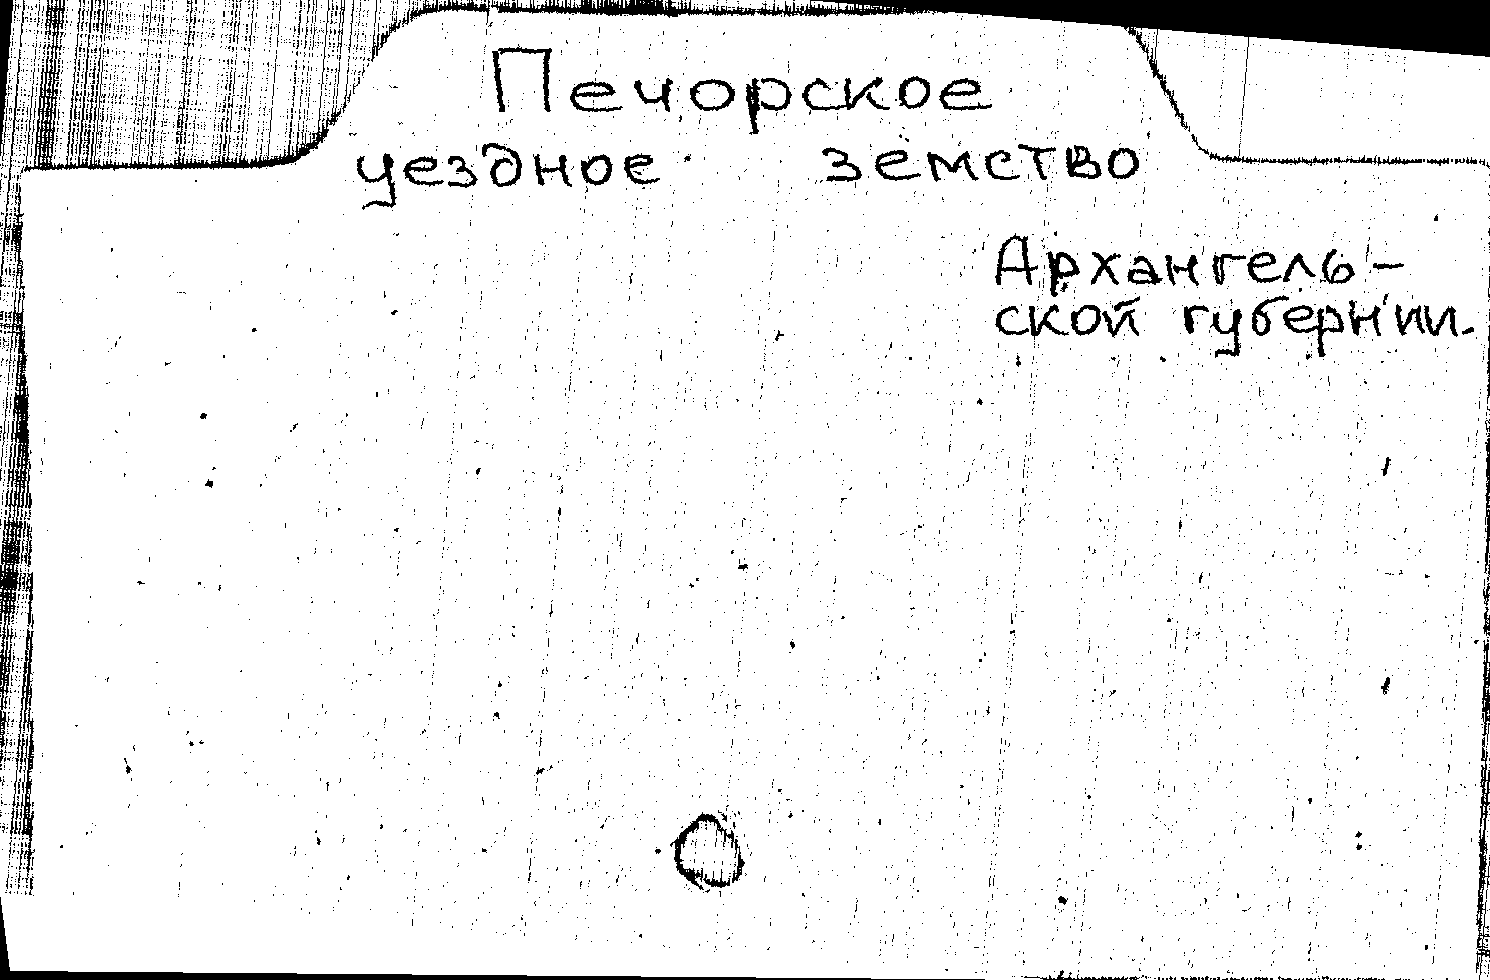 Печорское
уездное земство
Архангель-
ской губернии.